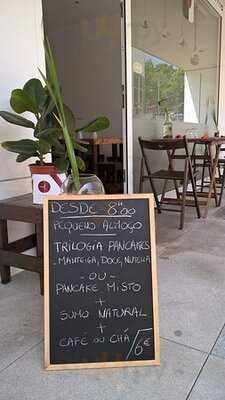 DESDE 8:00
PEQUENO ALMOÇO
TRILOGIA PANCAKES
- MANTEIGA, DOCE, NUTELLA
- OU -
PANCAKE MISTO
+
SUMO NATURAL
+
CAFÉ OU CHÁ 6€